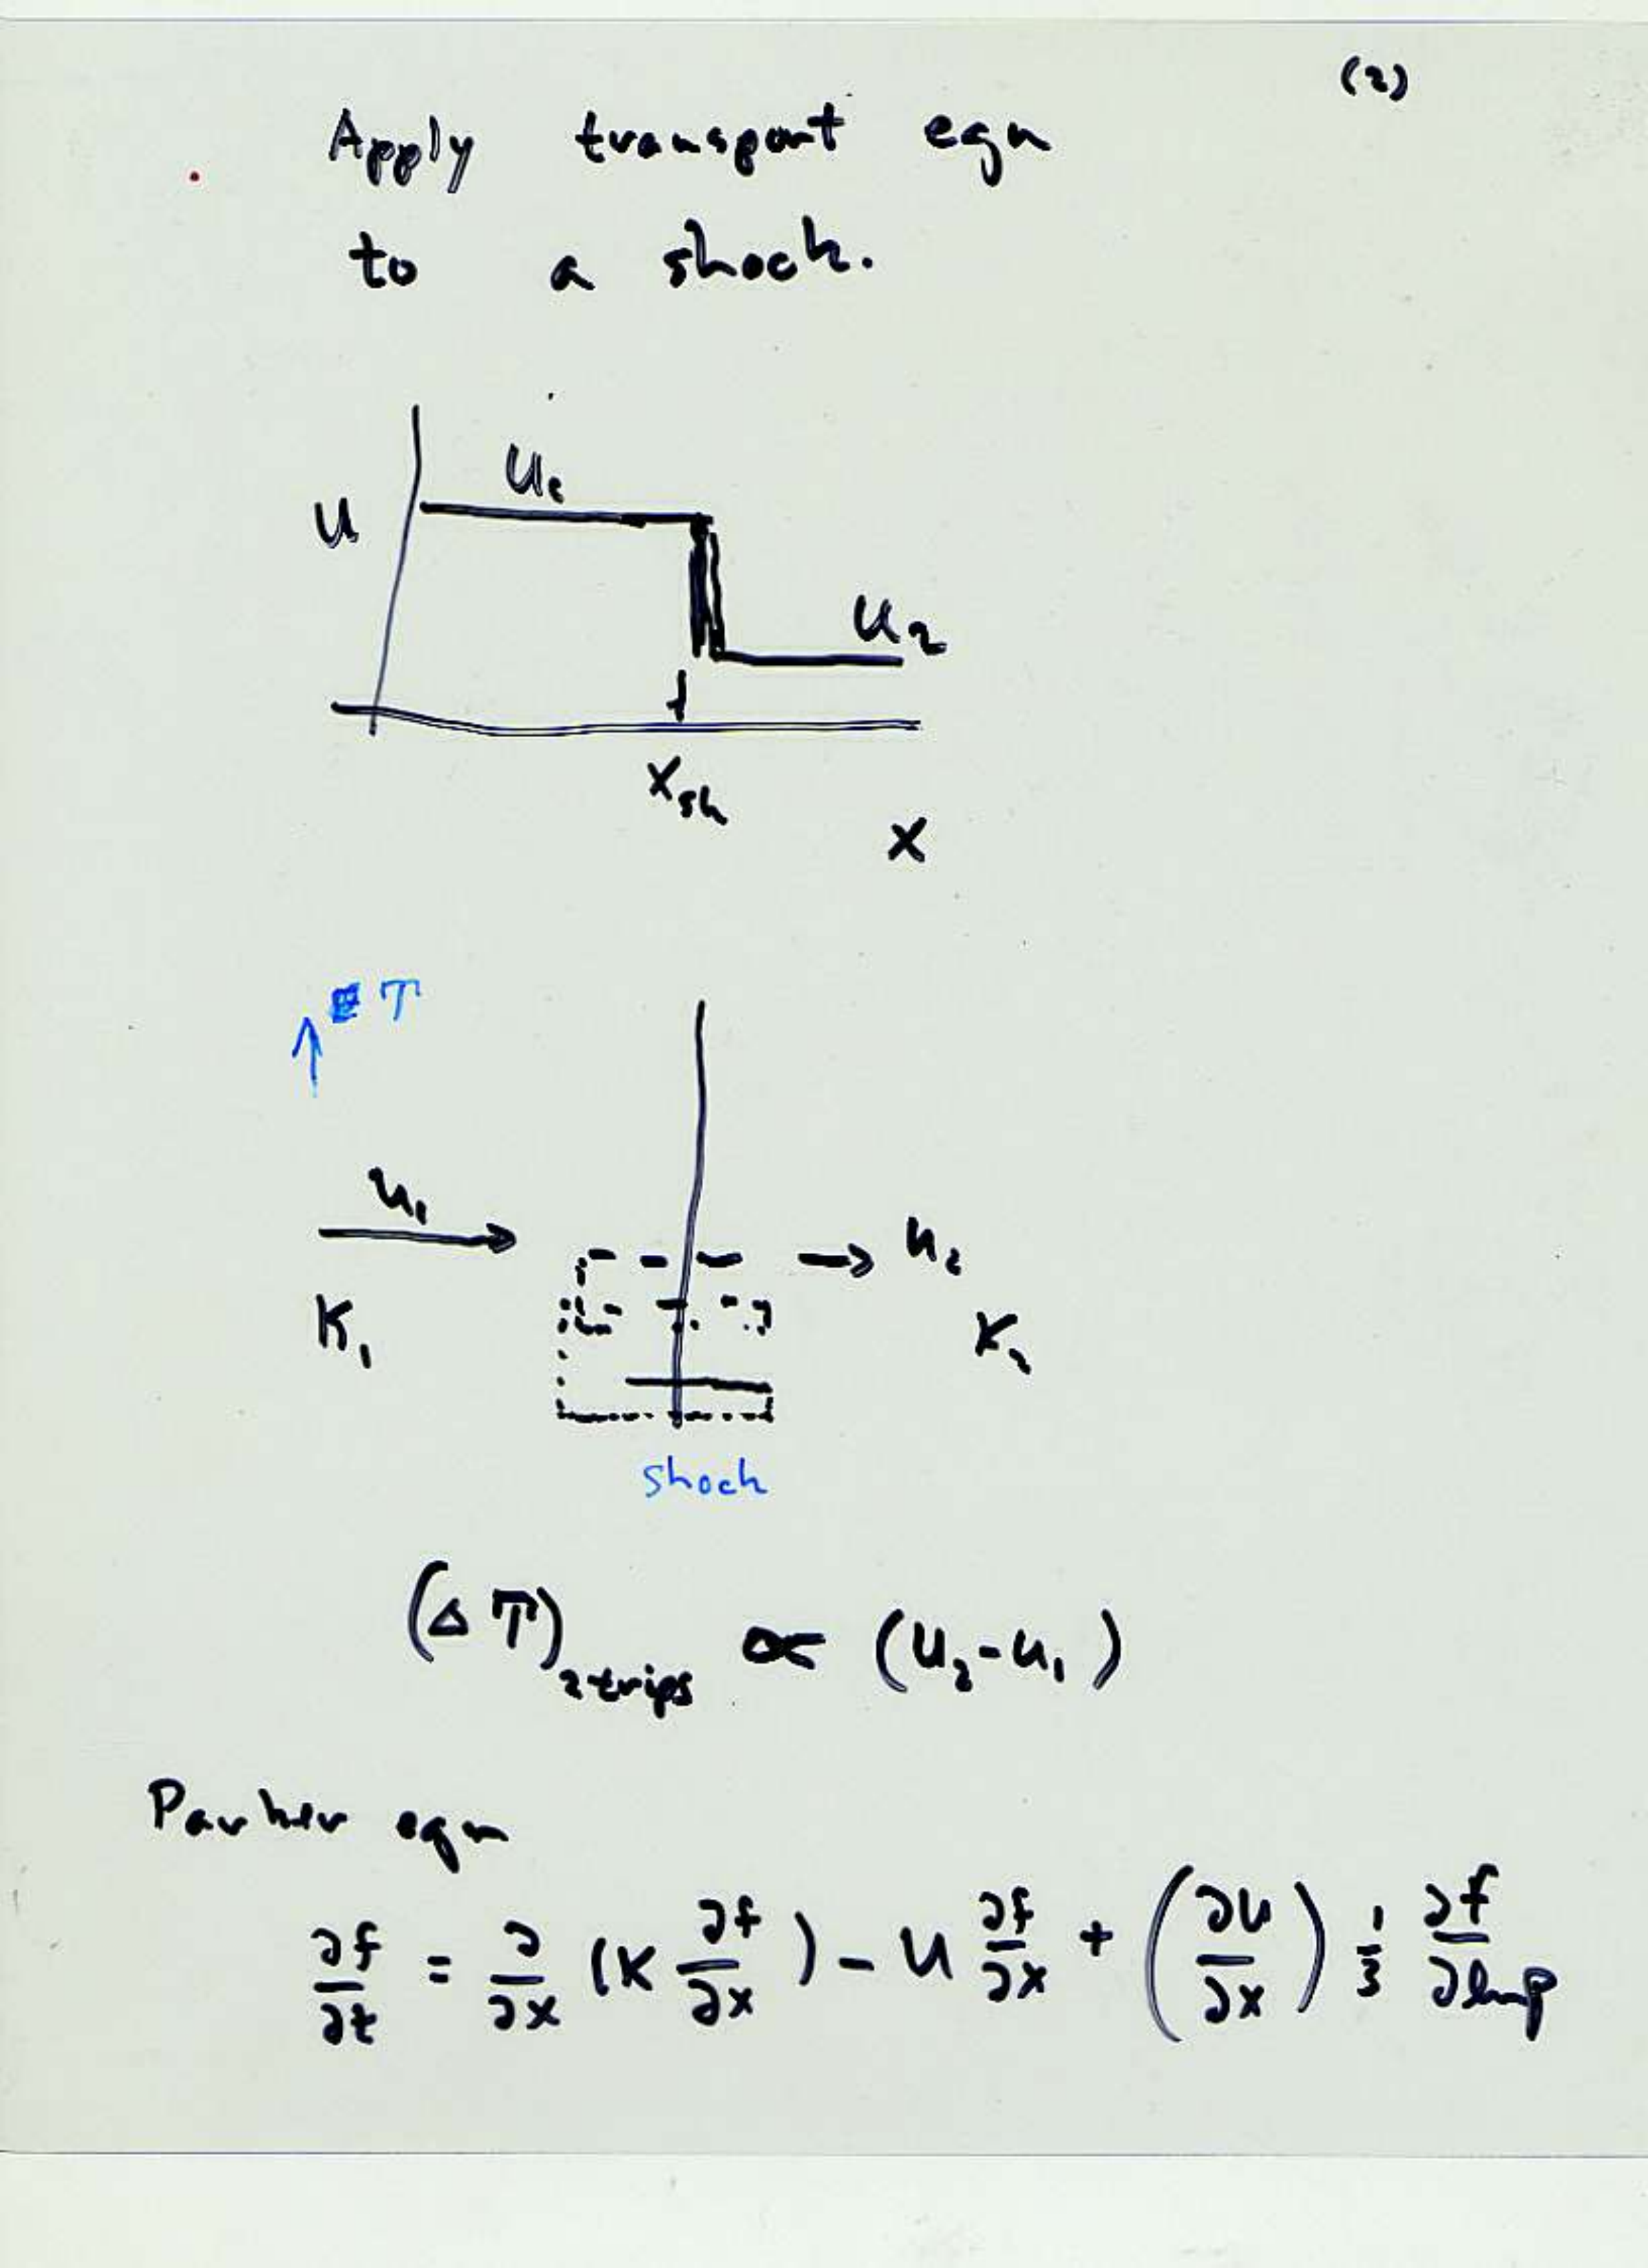 (2)
Apply transport eqn
to a shock.
U₁
U
U₂
x_sh
x
T
u₁
u₂
K₁
K₂
shock
(Δ T)_2 trips ∝ (u₂-u₁)
Parker eqn
∂f/∂t = ∂/∂x (K ∂f/∂x) - U ∂f/∂x + (∂U/∂x) 1/3 ∂f/∂lnp